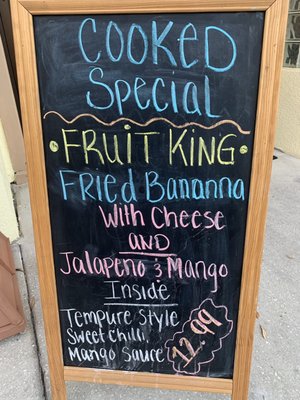 Cooked
Special
• Fruit King •
Fried Bananna
With Cheese
AND
Jalapeno & Mango
Inside
Tempure Style
Sweet Chilli
Mango Sauce
12.99